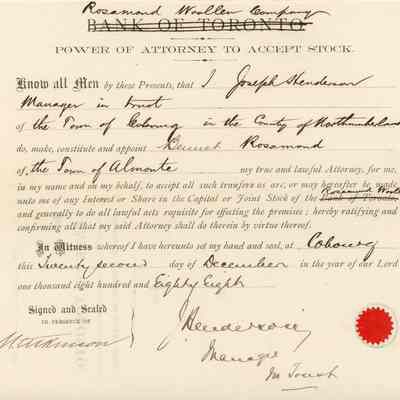 Rosamond Woollen Company
BANK OF TORONTO
POWER OF ATTORNEY TO ACCEPT STOCK.
Know all Men by these Presents, that I Joseph Henderson
Manager in trust
of the Town of Cobourg in the County of Northumberland
do, make, constitute and appoint Bennet Rosamond
of the Town of Almonte my true and lawful Attorney, for me,
in my name and on my behalf, to accept all such transfers as are, or may hereafter be made
unto me of any Interest or Share in the Capital or Joint Stock of the Bank of Toronto, Rosamond Wool
and generally to do all lawful acts requisite for effecting the premises; hereby ratifying and
confirming all that my said Attorney shall do therein by virtue thereof.
In Witness whereof I have hereunto set my hand and seal, at Cobourg
this Twenty second day of December in the year of our Lord
one thousand eight hundred and Eighty Eight
Signed and Sealed
IN PRESENCE OF
J Henderson
Manager
In Trust